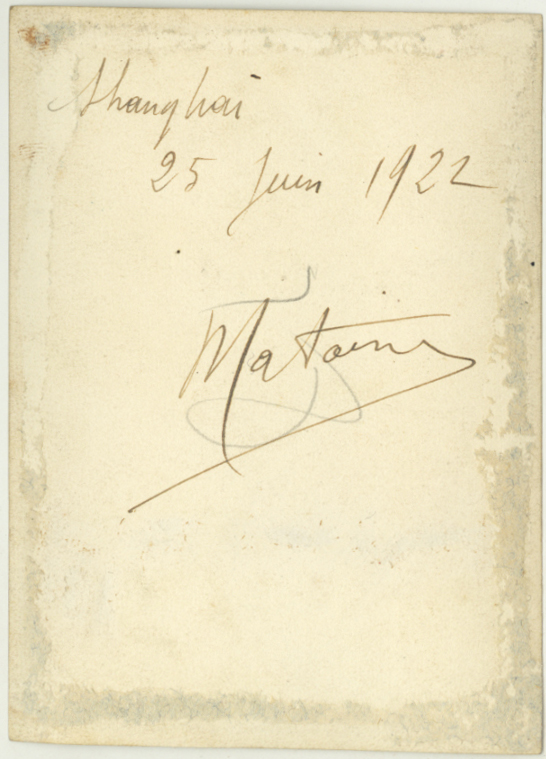 Shanghai
25 Juin 1922